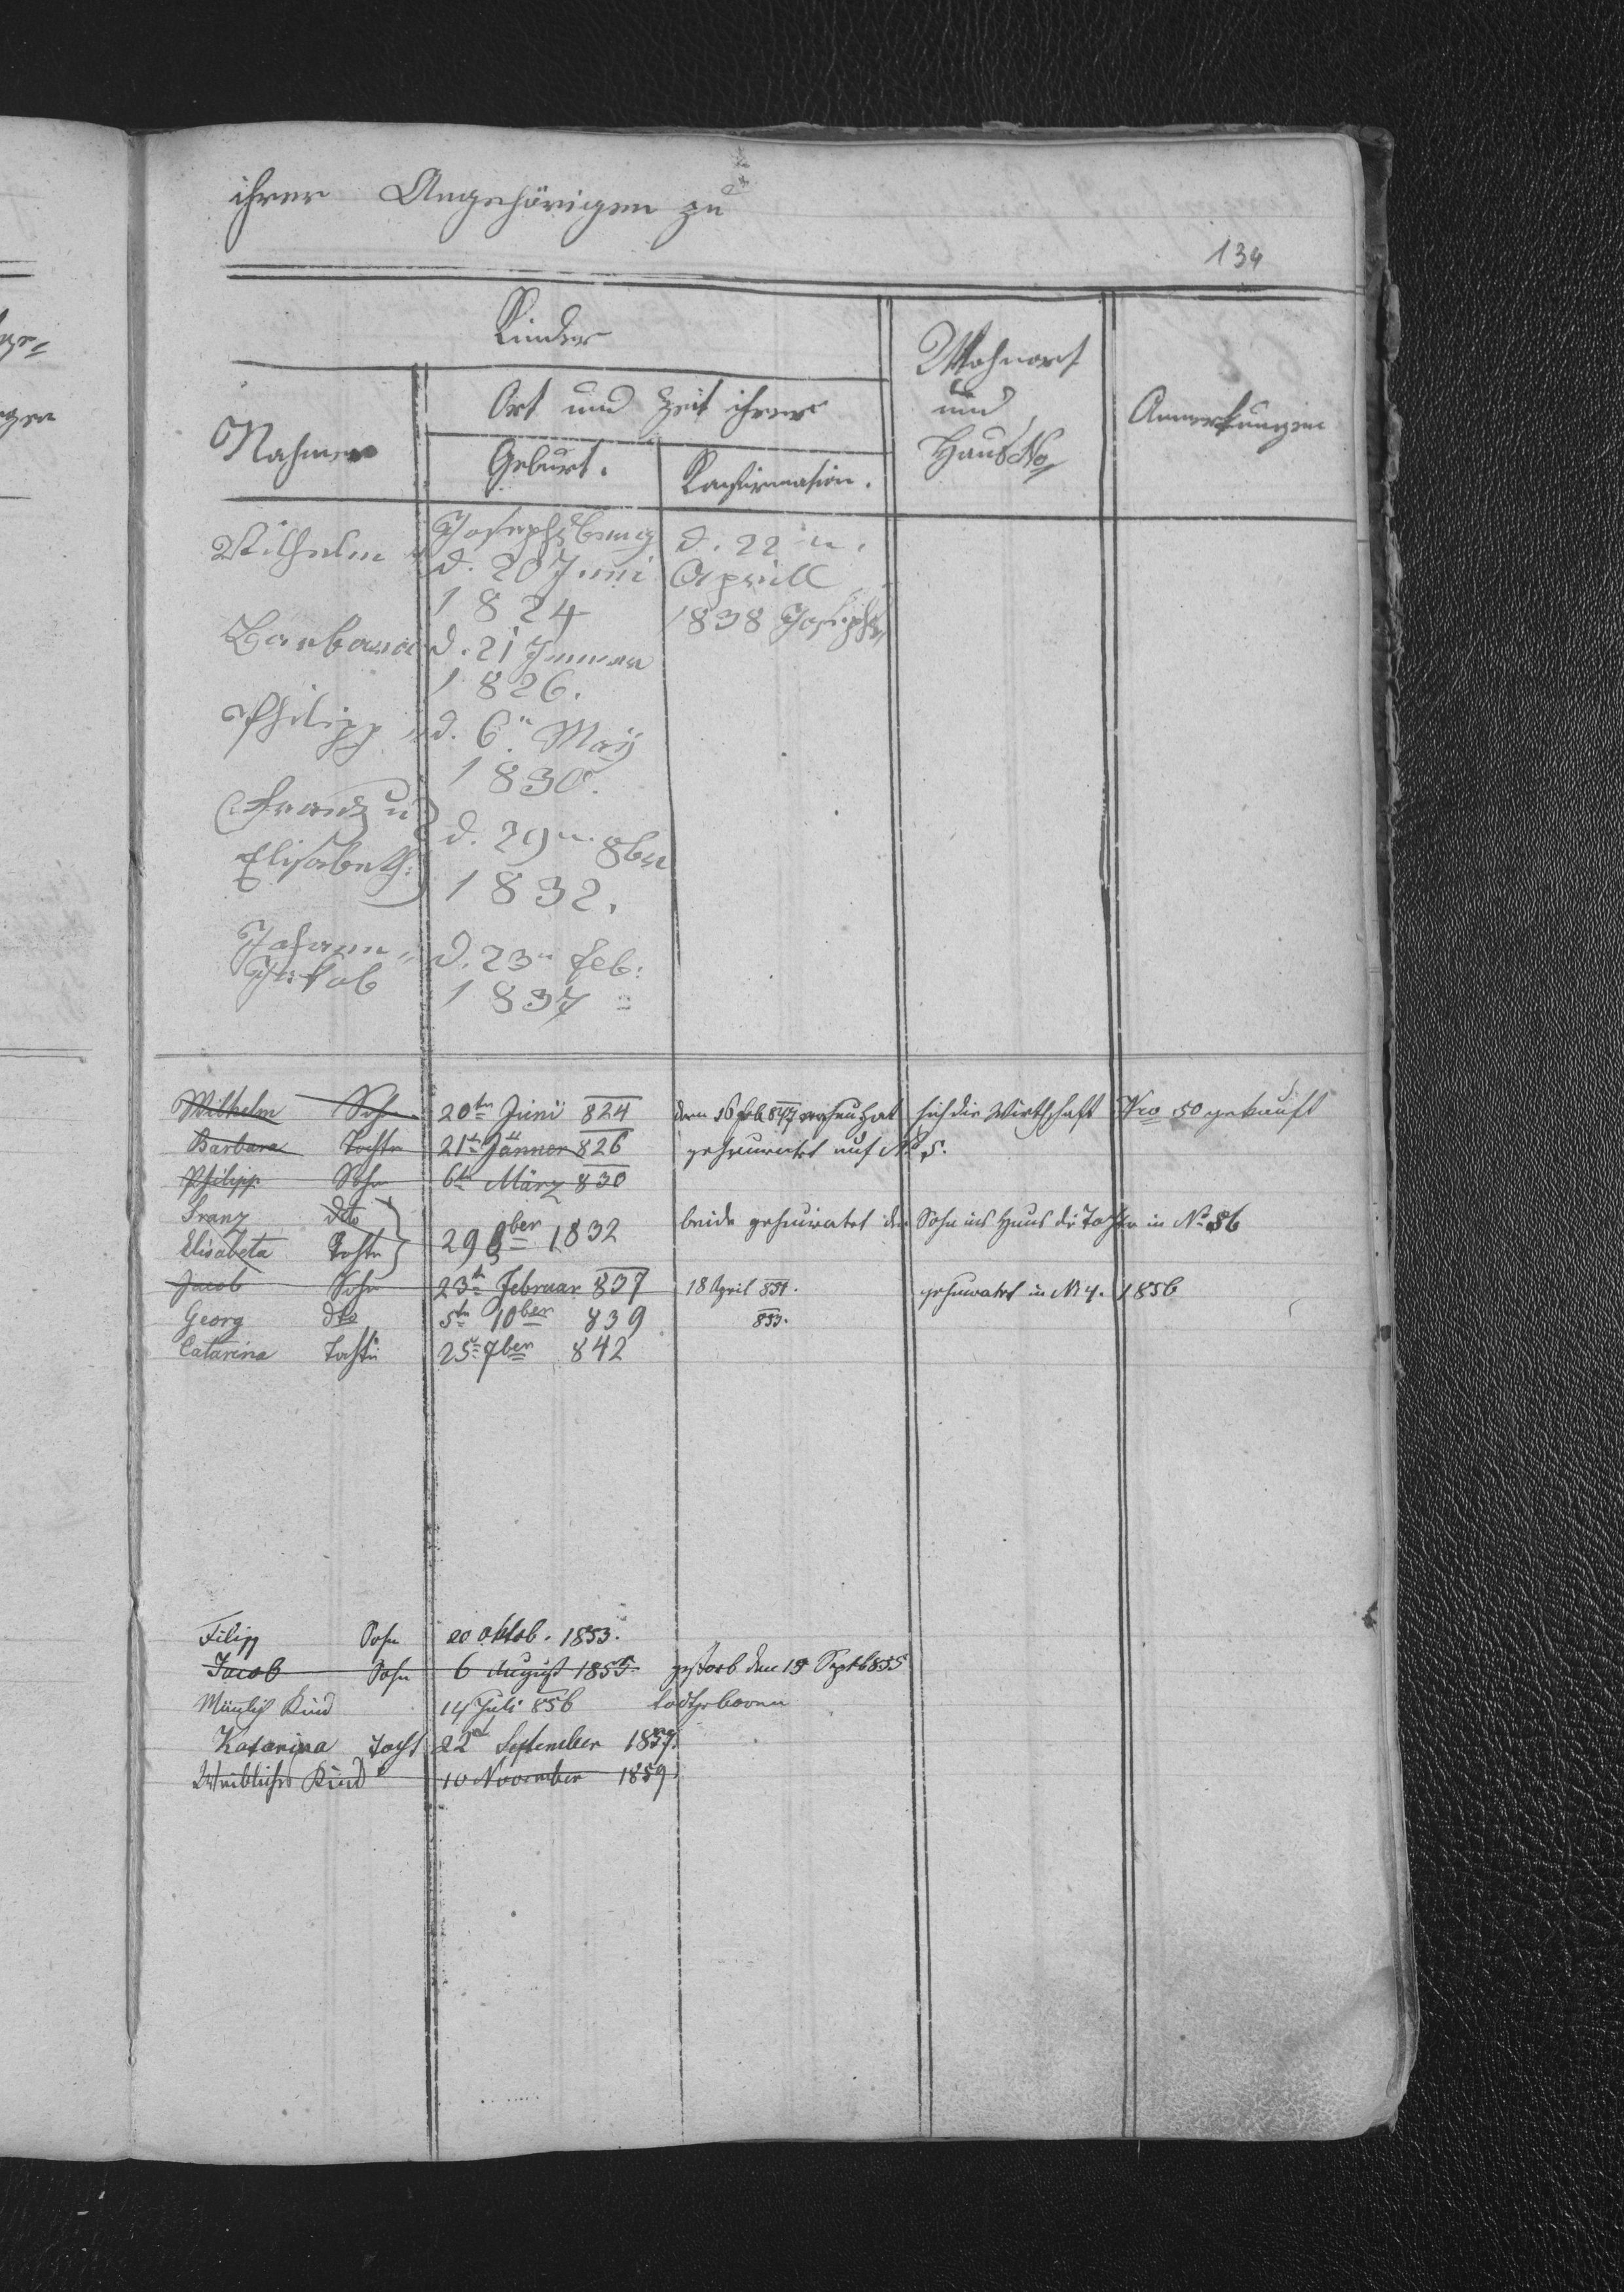 ihrer Angehörigen zu
134
Kinder
Nahmen
Ort und Zeit ihrer
Geburt.
Konfirmation.
Wohnort
und
Haus No
Anmerkungen
Wilhelm Josephsberg d. 22 n.
d. 20 Juni Aprill
1824 1838 Josephs
Barbara d. 21 Jenner
1826.
Philipp d. 6n May
1830.
(Franz u
d. 29n 8ber
Elisabeth:)
1832.
Johann d. 23n Feb:
Jakob
1837
Wilhelm Sohn 20ten Juni 824 den 16 Feb 847 hat sich die Wirthschaft Nro 50 gekauft
Barbara Tochter 21t Jänner 826 geheurathet auf No 5.
Philipp Sohn 6ten März 830
Franz dto
29 8ber 1832 beide geheuratet der Sohn ins Haus die Tochter in No 86
Elisabeta Tochter
Jacob Sohn 23tn Februar 837 18 April 851. geheuratet in No 4. 1856
Georg dto 5tn 10ber 839 853.
Catarina Tochter 25tn 7ber 842
Filipp Sohn 20 Oktob. 1853.
Jacob Sohn 6 August 1855. gestorb den 15 Septb 855
Mänlich Kind 14 Juli 856 todtgeboren
Katarina Tocht 22ten September 1857.
Weibliches Kind 10 November 1859